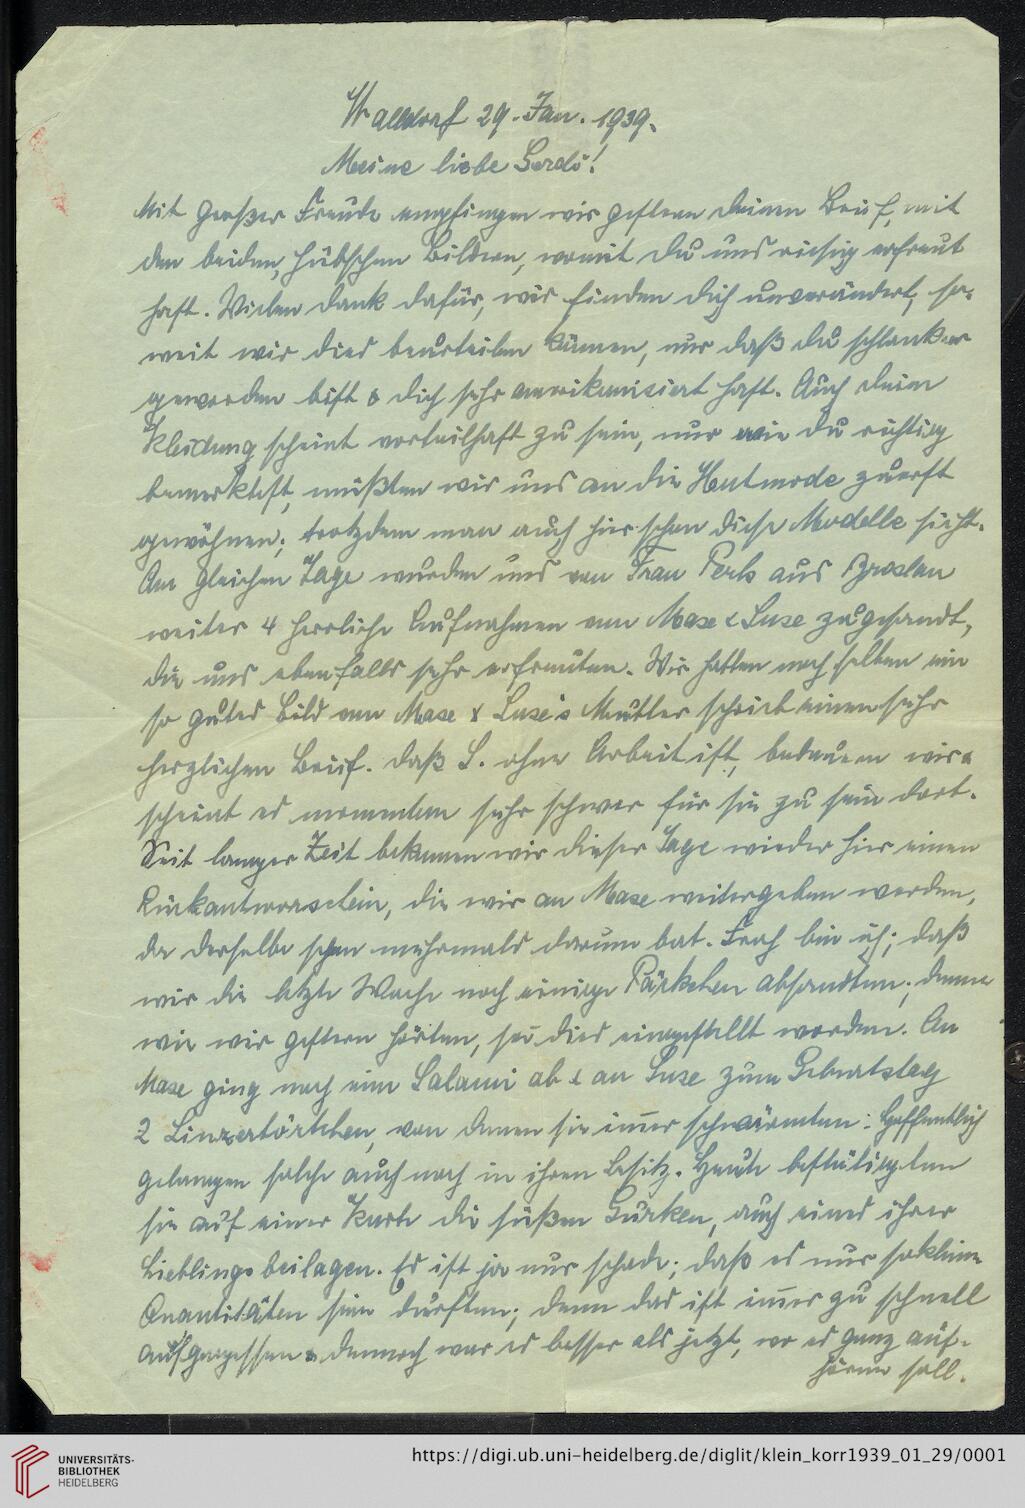 Walldorf 29. Jan. 1939.
Meine liebe Gerdi!
Mit großer Freude empfingen wir gestern deinen Brief, mit
den beiden, hübschen Bildern, womit du uns riesig erfreut
hast. Vielen Dank dafür, wir finden dich unverändert, so-
weit wir dies beurteilen können, nur daß du schlanker
geworden bist & dich sehr amerikanisiert hast. Auch deine
Kleidung scheint vorteilhaft zu sein, nur wie du richtig
bemerktest, müßten wir uns an die Hutmode zuerst
gewöhnen; trotzdem man auch hier schon diese Modelle sieht.
Am gleichen Tage wurden uns von Frau Perls aus Breslau
weiter 4 herrliche Aufnahmen von Mase & Suse zugesandt,
die uns ebenfalls sehr erfreuten. Wir hatten noch selten ein
so gutes Bild von Mase & Suse's Mutter schrieb einen sehr
herzlichen Brief. Daß S. ohne Arbeit ist, bedauern wir &
scheint es momentan sehr schwer für sie zu sein dort.
Seit langer Zeit bekamen wir dieser Tage wieder hier einen
Rückantwortschein, die wir an Mase weitergeben werden,
da derselbe schon mehrmals darum bat. Froh bin ich; daß
wir die letzte Woche noch einige Päckchen absandten; denn
wie wir gestern hörten, sei dies eingestellt worden. An
Mase ging noch eine Salami ab & an Suse zum Geburtstag
2 Linzertörtchen, von denen sie immer schwärmten. Hoffentlich
gelangen solche auch noch in ihren Besitz. Heute bestätigten
sie auf einer Karte die süßen Gurken, auch eines ihrer
Lieblingsbeilagen. Es ist ja nur schade; daß es nur so kleine
Quantitäten sein durften; denn das ist immer zu schnell
aufgegessen & dennoch war es besser als jetzt, wo es ganz auf-
hören soll.
UNIVERSITÄTS-
BIBLIOTHEK
HEIDELBERG
https://digi.ub.uni-heidelberg.de/diglit/klein_korr1939_01_29/0001